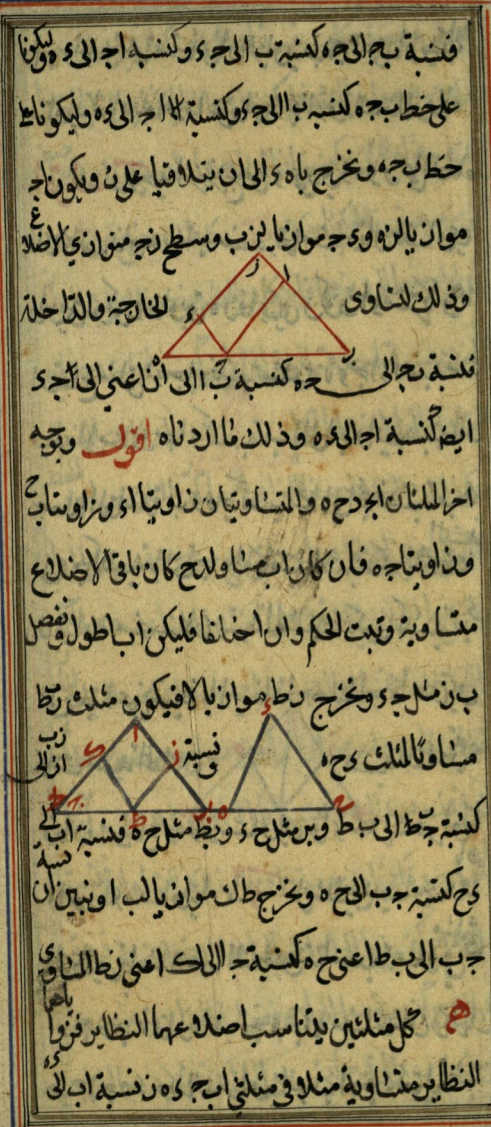 فنسبة ب ج الى ج ه كنسبة ب ا الى ج ء وكنسبة ا ج الى ء ه وليكونا
على خط ب ج ه كنسبة ب ا الى ج ء وكنسبة ا ج الى ء ه وليكونا على
خط ب ج ه ونخرج ب ا ه ء الى ان يتلاقيا على ز ويكون ا ج
موازيا لز ه و ء ج موازيا لز ب وسطح ز ج متوازي الاضلاع
وذلك لتساوى الخارجة والداخلة
ز ا ء ب
فنسبة ب ج الى ج ه كنسبة ب ا الى ا ز اعنى الى ج ء
ايضا كنسبة ا ج الى ء ه وذلك ما اردناه اقول وبوجه
اخر المثلثان ا ب ج د ح ه والمتساويتان زاويتا ا ء وزاويتا ب ح
وزاويتا ج ه فان كان ا ب مساو لد ح كان باقى الاضلاع
متساوية وثبت الحكم وان اختلفا فليكن ا ب اطول ونفصل
ب ز مثل ح ء ونخرج ز ط موازيا لا ج فيكون مثلث ز ب ط
مساويا لمثلث ء ح ه ونسبة ز ب الى
ا ز
ا ء ز ك ح ه ب ط ج
كنسبة ج ط الى ب ط و ب ز مثل ح ء و ب ط مثل ح ه فنسبة ا ب الى
ء ح كنسبة ج ب الى ح ه ونخرج ط ك موازيا لب ا ونبين ان نسبة
ج ب الى ب ط اعنى ح ه كنسبة ج ا الى ا ك اعنى ز ط المساوى
ه كل مثلثين يتناسب اضلاعهما النظاير فزواياهما
النظاير متساوية مثلا فى مثلثى ا ب ج ء ه ز نسبة ا ب الى ء ه